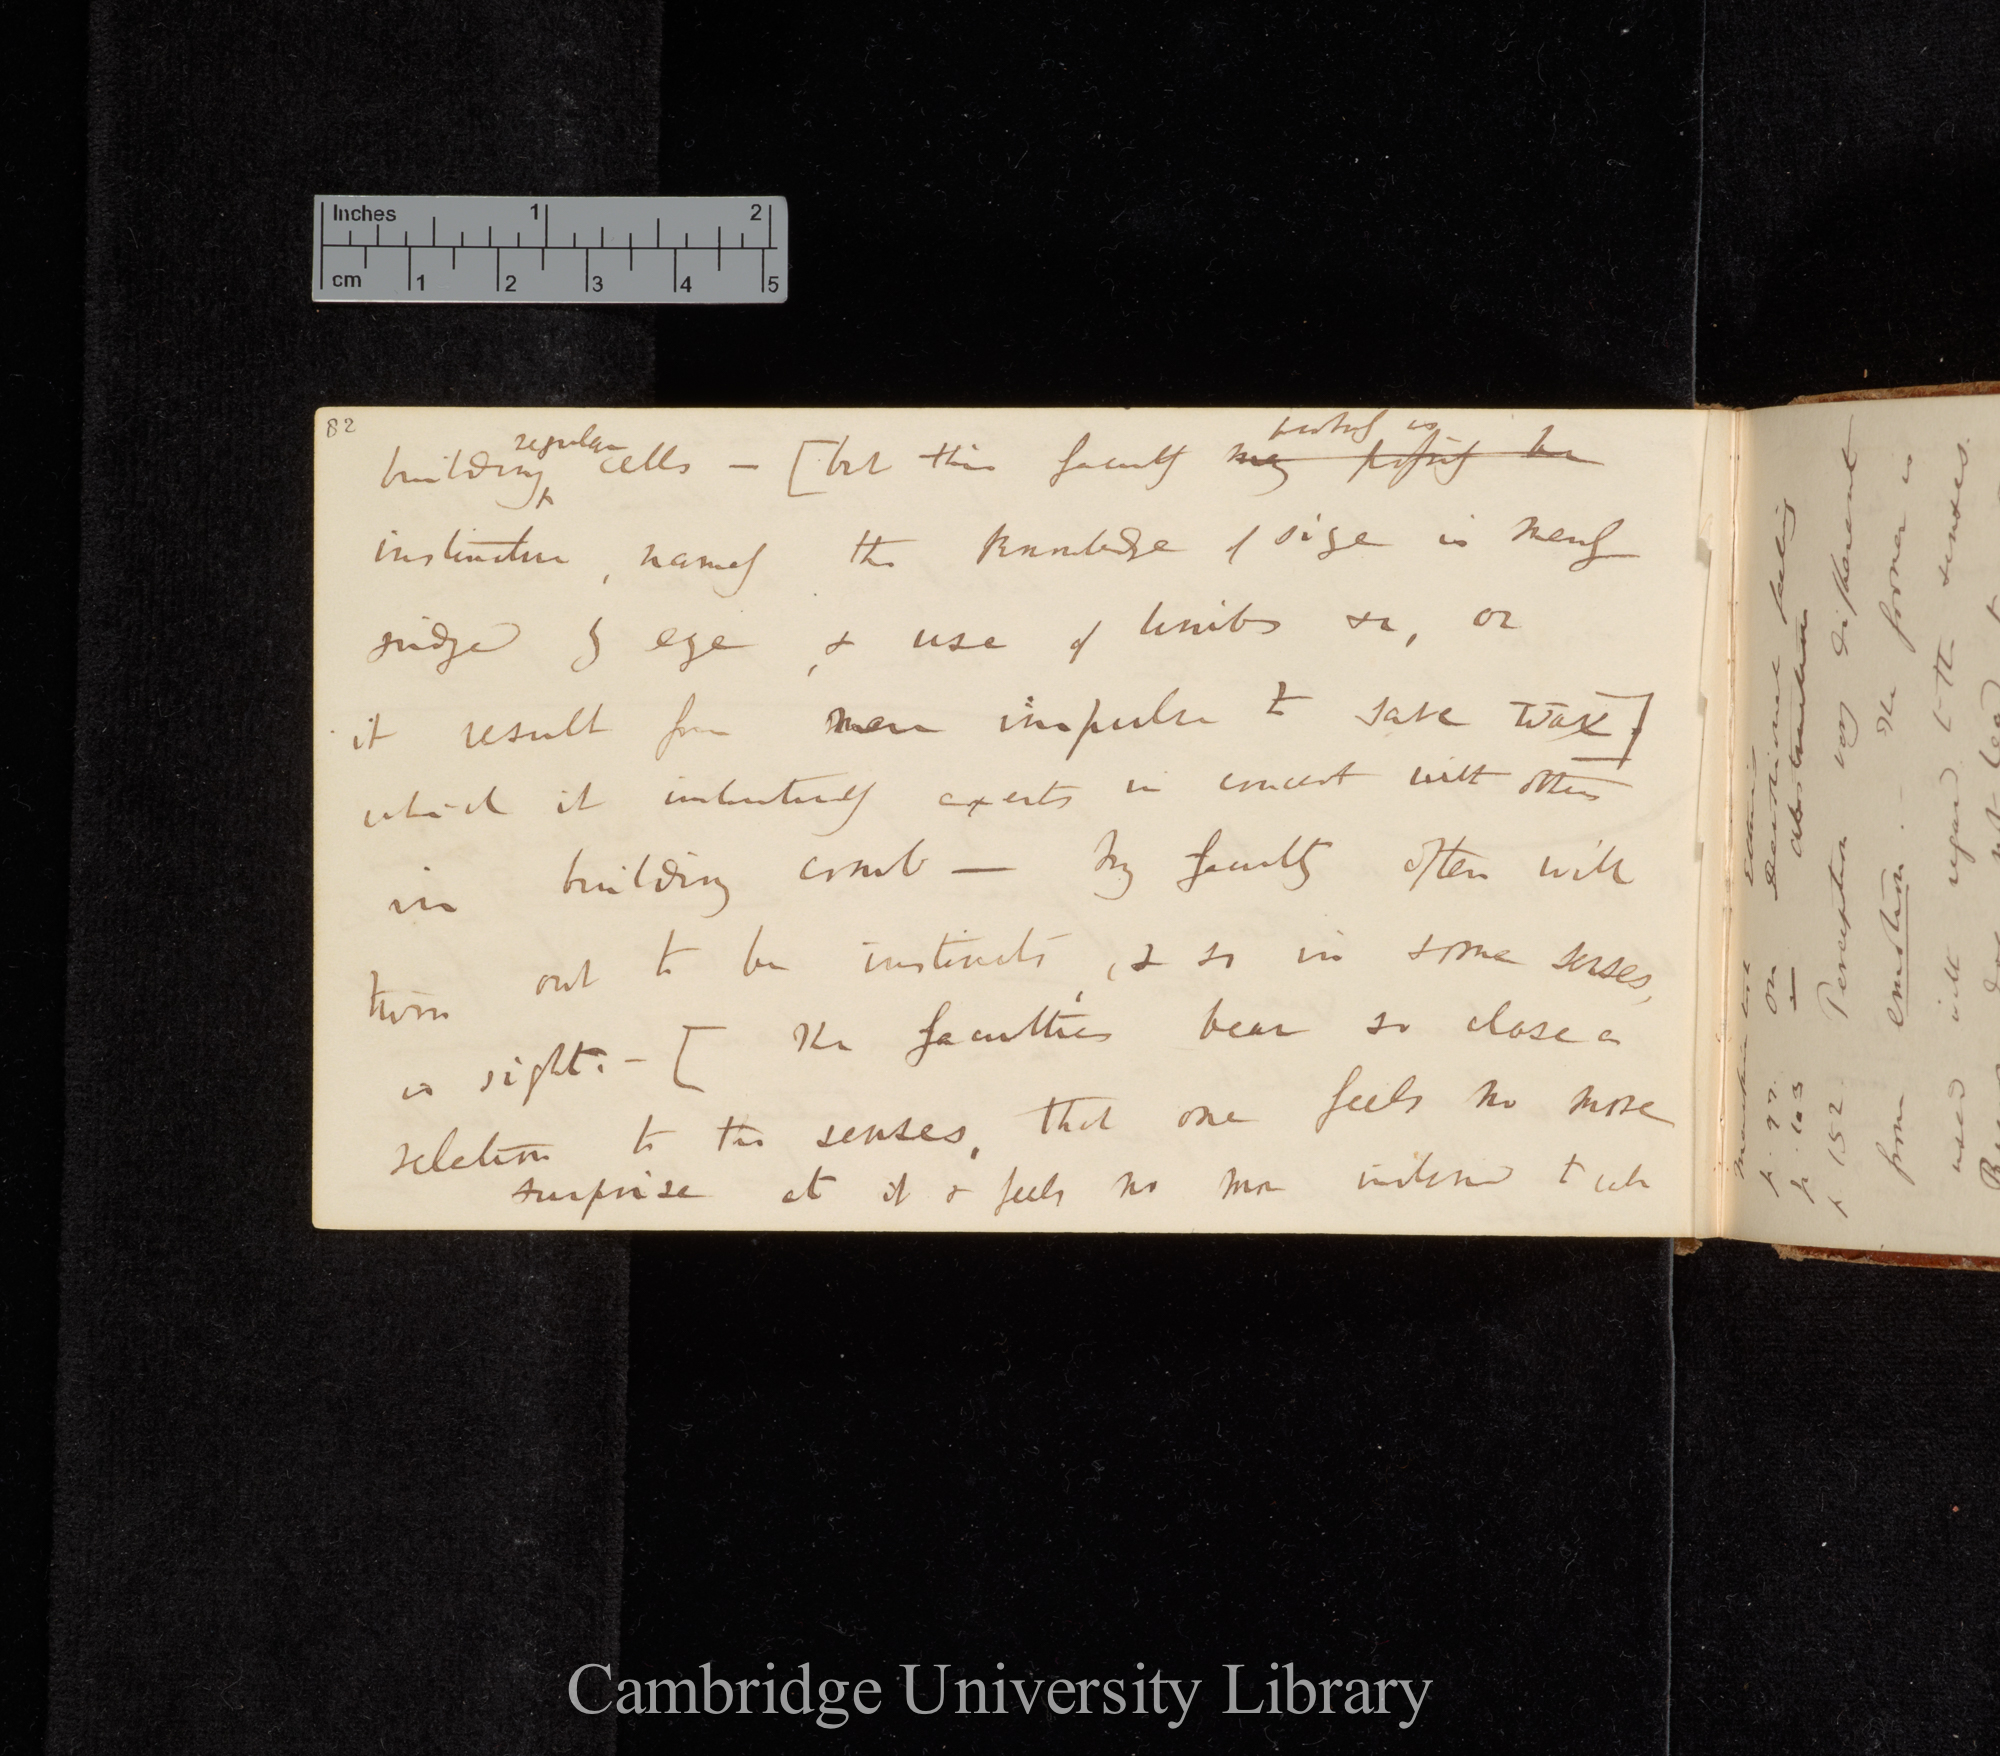 Inches 1 2
cm 1 2 3 4 5
82
regular
building cells — [but this faculty may possibly be
is
instinctive, namely the knowledge of size is merely
judged by eye, & use of limbs &c, or
it result from mere impulse to save wax.]
which it instinctively exerts in concert with others
in building comb — My faculty often will
turn out to be instincts, & so in some senses,
is sight. — [The faculties bear so close a
relation to the senses, that one feels no more
surprise at it & feels no more inclined to ask
p. 97 On Devotional feeling
p. 103 — abstraction
p 152. Perception very different
from emotion. — The former is
used with regard to the senses.
Cambridge University Library